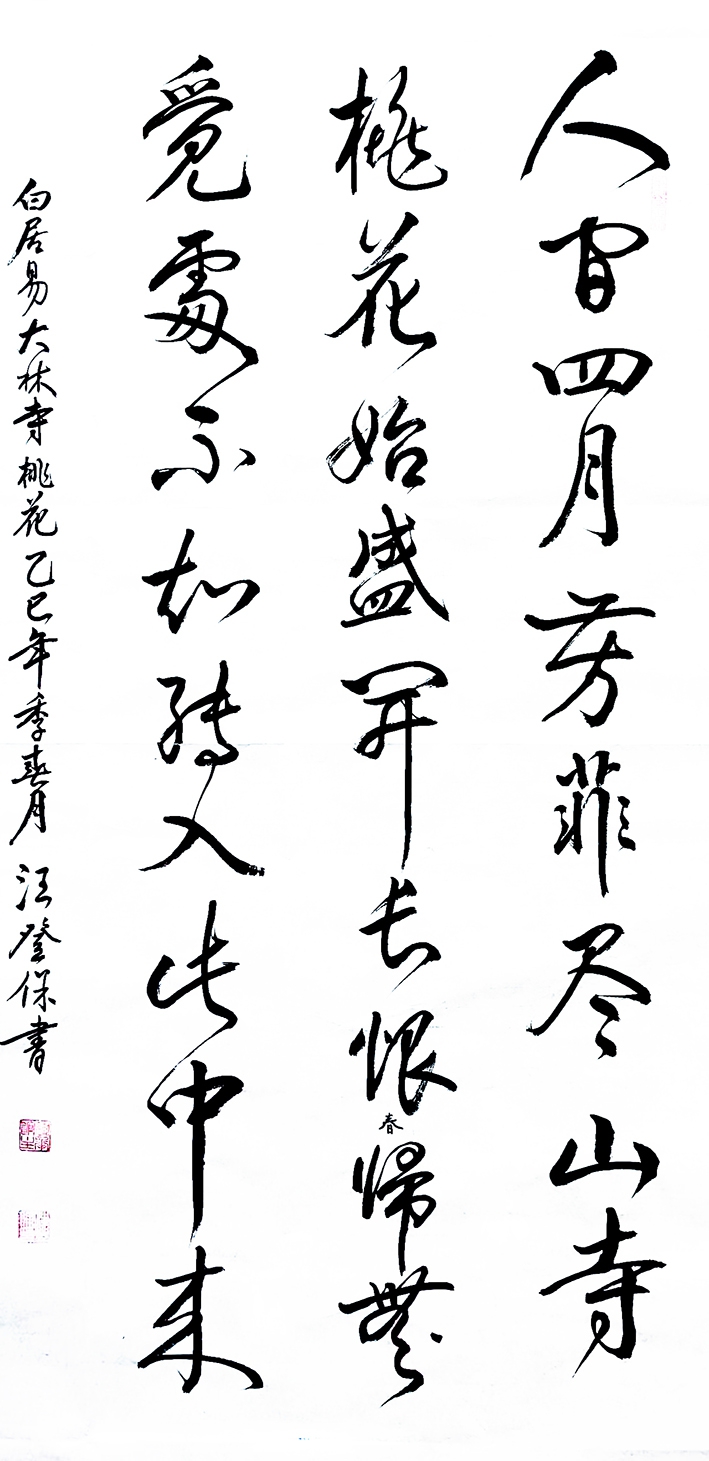 人间四月芳菲尽山寺
桃花始盛开长恨春歸無
覓處不知轉入此中来
白居易大林寺桃花乙巳年季春月 汪登保書